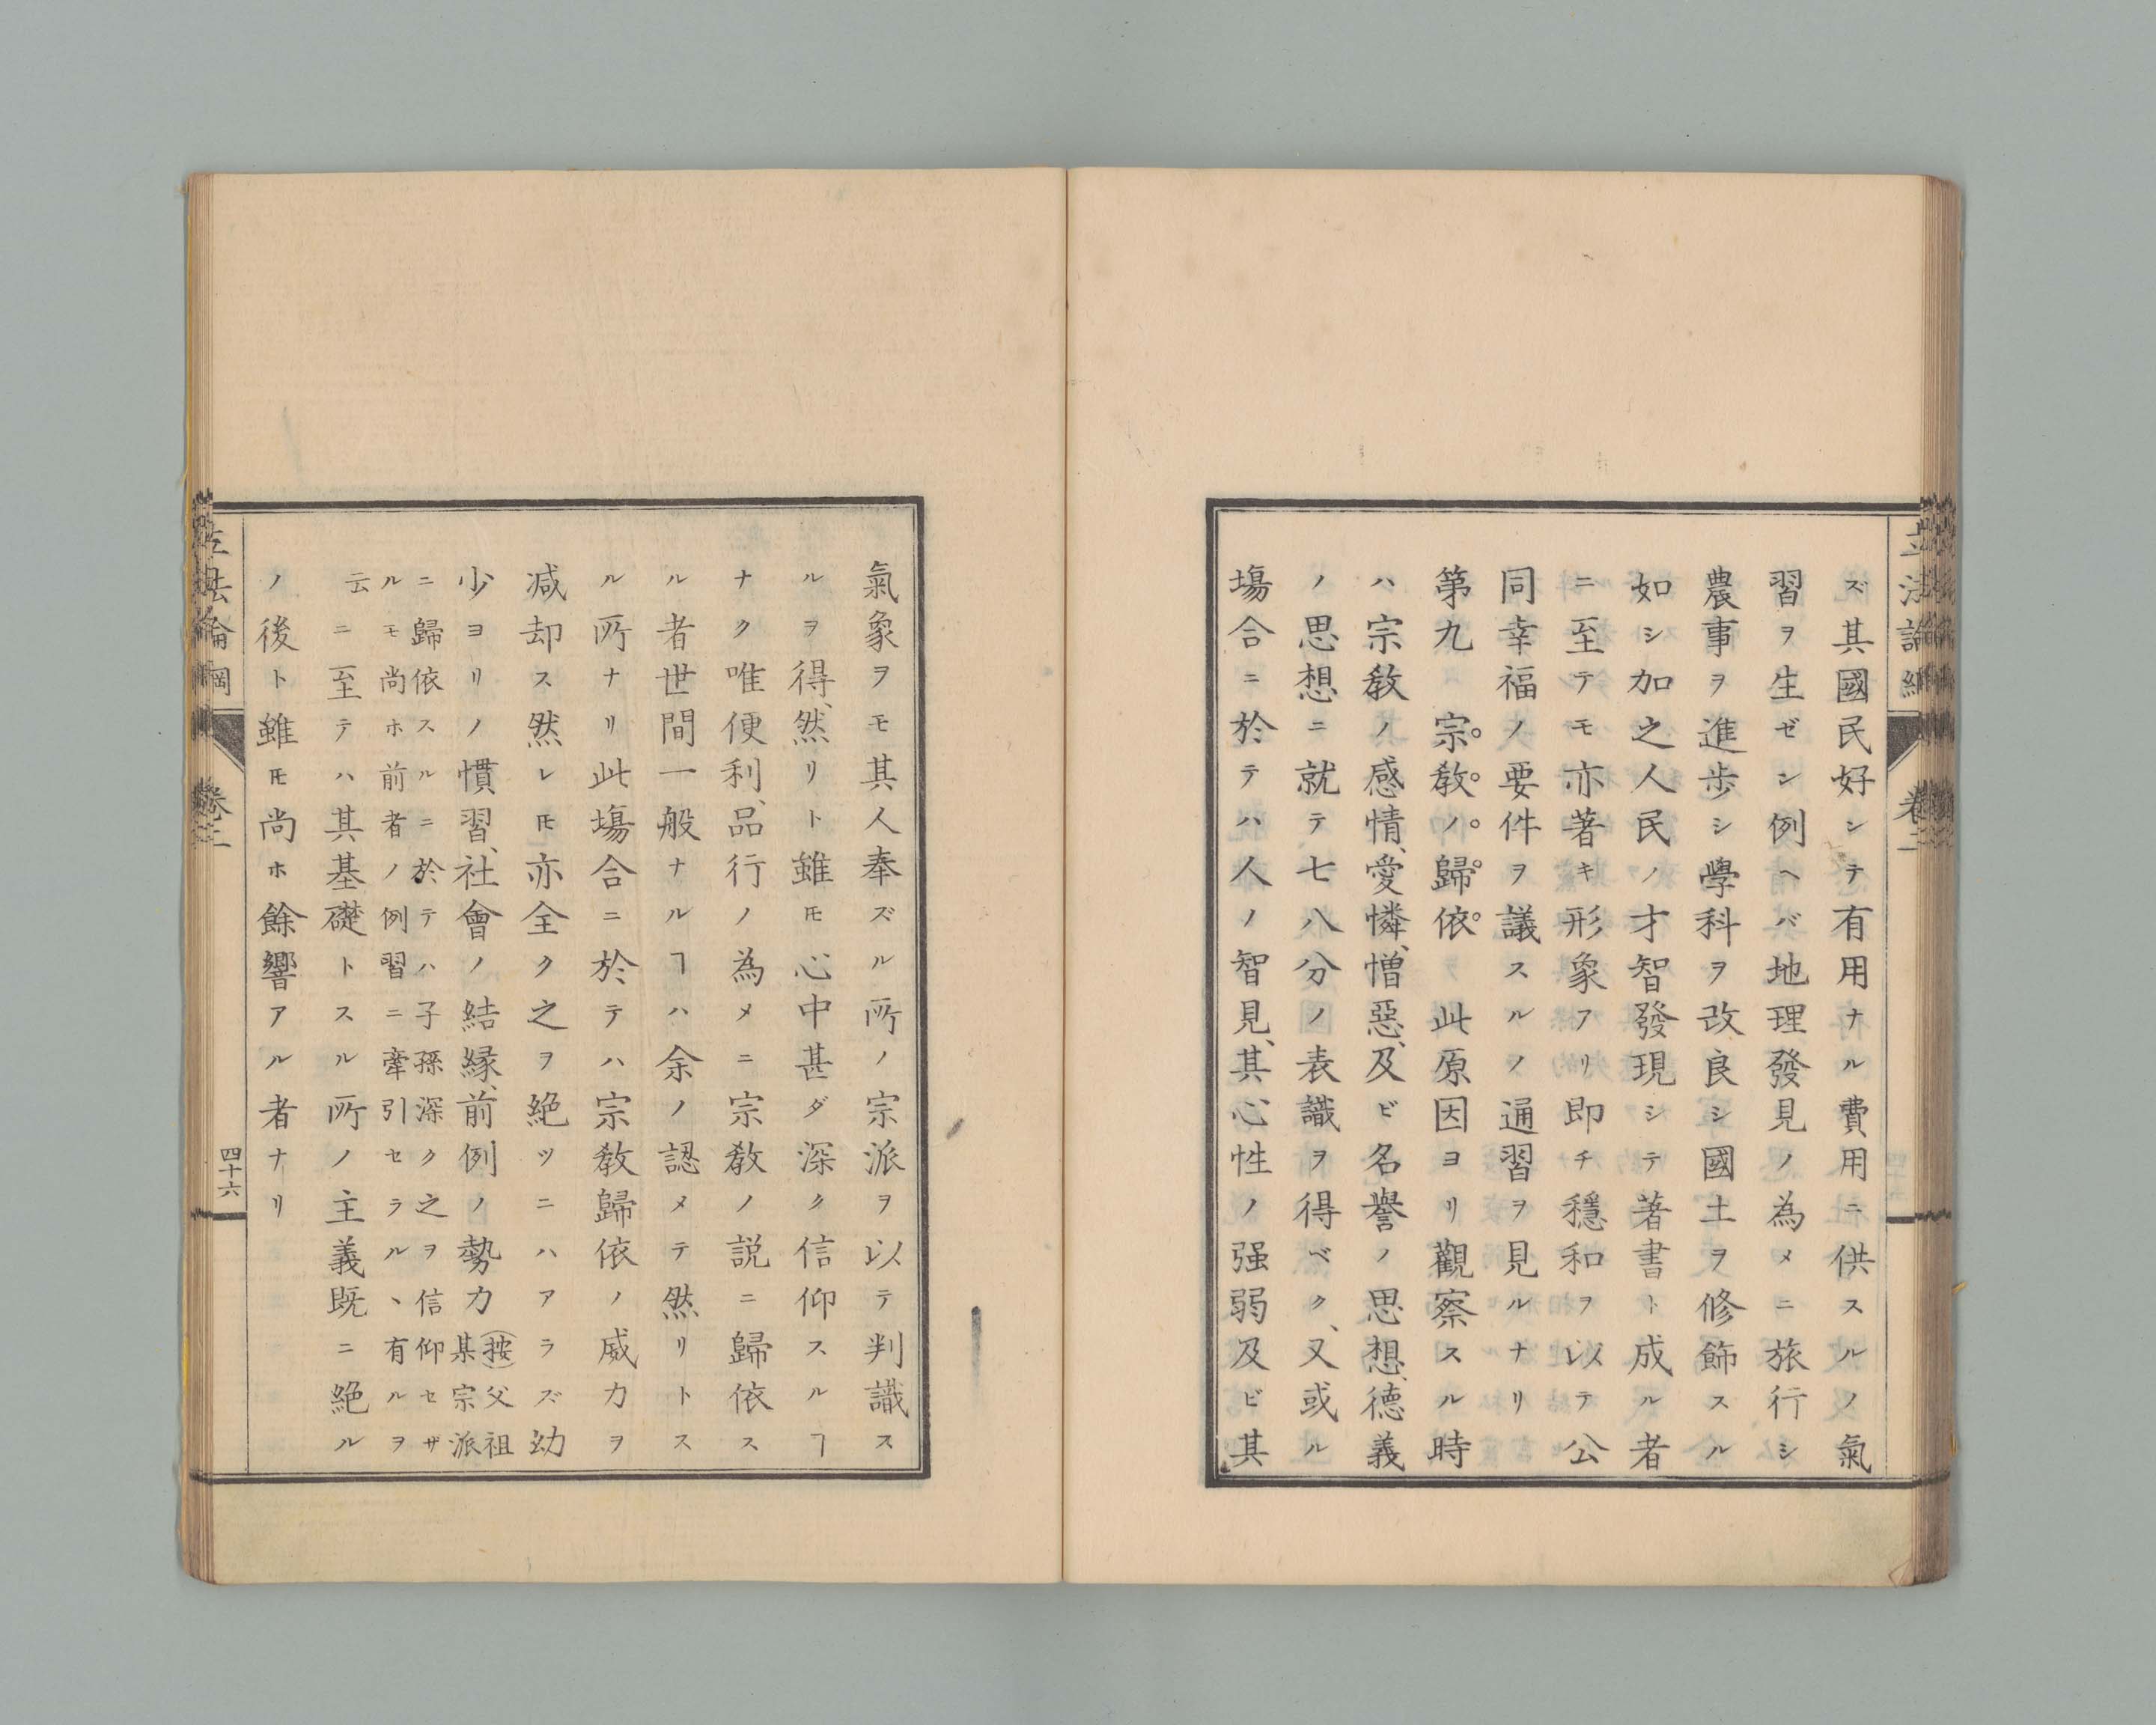 立法論綱
卷二
ズ其國民好シテ有用ナル費用ニ供スルノ氣
習ヲ生ゼン例ヘバ地理發見ノ為メニ旅行シ
農事ヲ進歩シ學科ヲ改良シ國土ヲ修飾スル
如シ加之人民ノ才智發現シテ著書ト成ル者
ニ至テモ亦著キ形象アリ即チ穩和ヲ以テ公
同幸福ノ要件ヲ議スルノ通習ヲ見ルナリ
第九 宗教ノ歸依 此原因ヨリ觀察スル時
ハ宗教ノ感情、愛憐、憎惡、及ビ名譽ノ思想、德義
ノ思想ニ就テ七八分ノ表識ヲ得ベク、又或ル
塲合ニ於テハ人ノ智見、其心性ノ强弱及ビ其
氣象ヲモ其人奉ズル所ノ宗派ヲ以テ判識ス
ルヲ得、然リト雖𪜈心中甚ダ深ク信仰スルヿ
ナク唯便利、品行ノ為メニ宗教ノ説ニ歸依ス
ル者世間一般ナルヿハ余ノ認メテ然リトス
ル所ナリ此塲合ニ於テハ宗教歸依ノ威力ヲ
減却ス然レ𪜈亦全ク之ヲ絶ツニハアラズ幼
少ヨリノ慣習、社會ノ結縁、前例ノ勢力
(按)父祖
某宗派
ニ歸依スルニ於テハ子孫深ク之ヲ信仰セザ
ルモ尚ホ前者ノ例習ニ牽引セラルヽ有ルヲ
云
ニ至テハ其基礎トスル所ノ主義既ニ絶ル
ノ後ト雖𪜈尚ホ餘響アル者ナリ
立法論綱
卷二
四十六